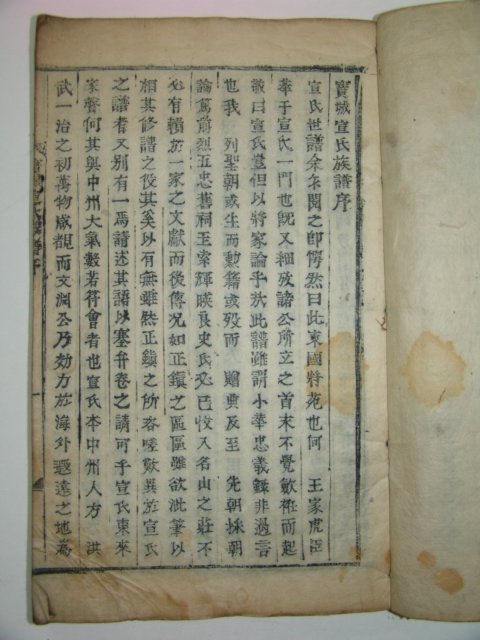 寶城宣氏族譜序
宣氏世譜余乍閱之卽愕然曰此東國將苑也何 王家虎臣
萃于宣氏一門也旣又細攷諸公所立之首末不覺斂袵而起
敬曰宣氏豈但以將家論乎於此譜雖謂小華忠義錄非過言
也我 列聖朝或生而勳籍或歿而 贈典及至 先朝採朝
論篤尙烈五忠舊祠玉宋輝暎良史氏必已收入名山之莊不
必有賴於一家之文獻而後傳况如正鎭之區區雖欲泚筆以
顯其修譜之役其奚以有無雖然正鎭之所咨嗟歎異於宣氏
之譜者又別有一焉請述其語以塞弁卷之請可乎宣氏東來
家聲何其與中州大氣數若符會者也宣氏本中州人方 洪
武一治之初萬物咸覩而文淵公乃効力於海外遐遠之地爲